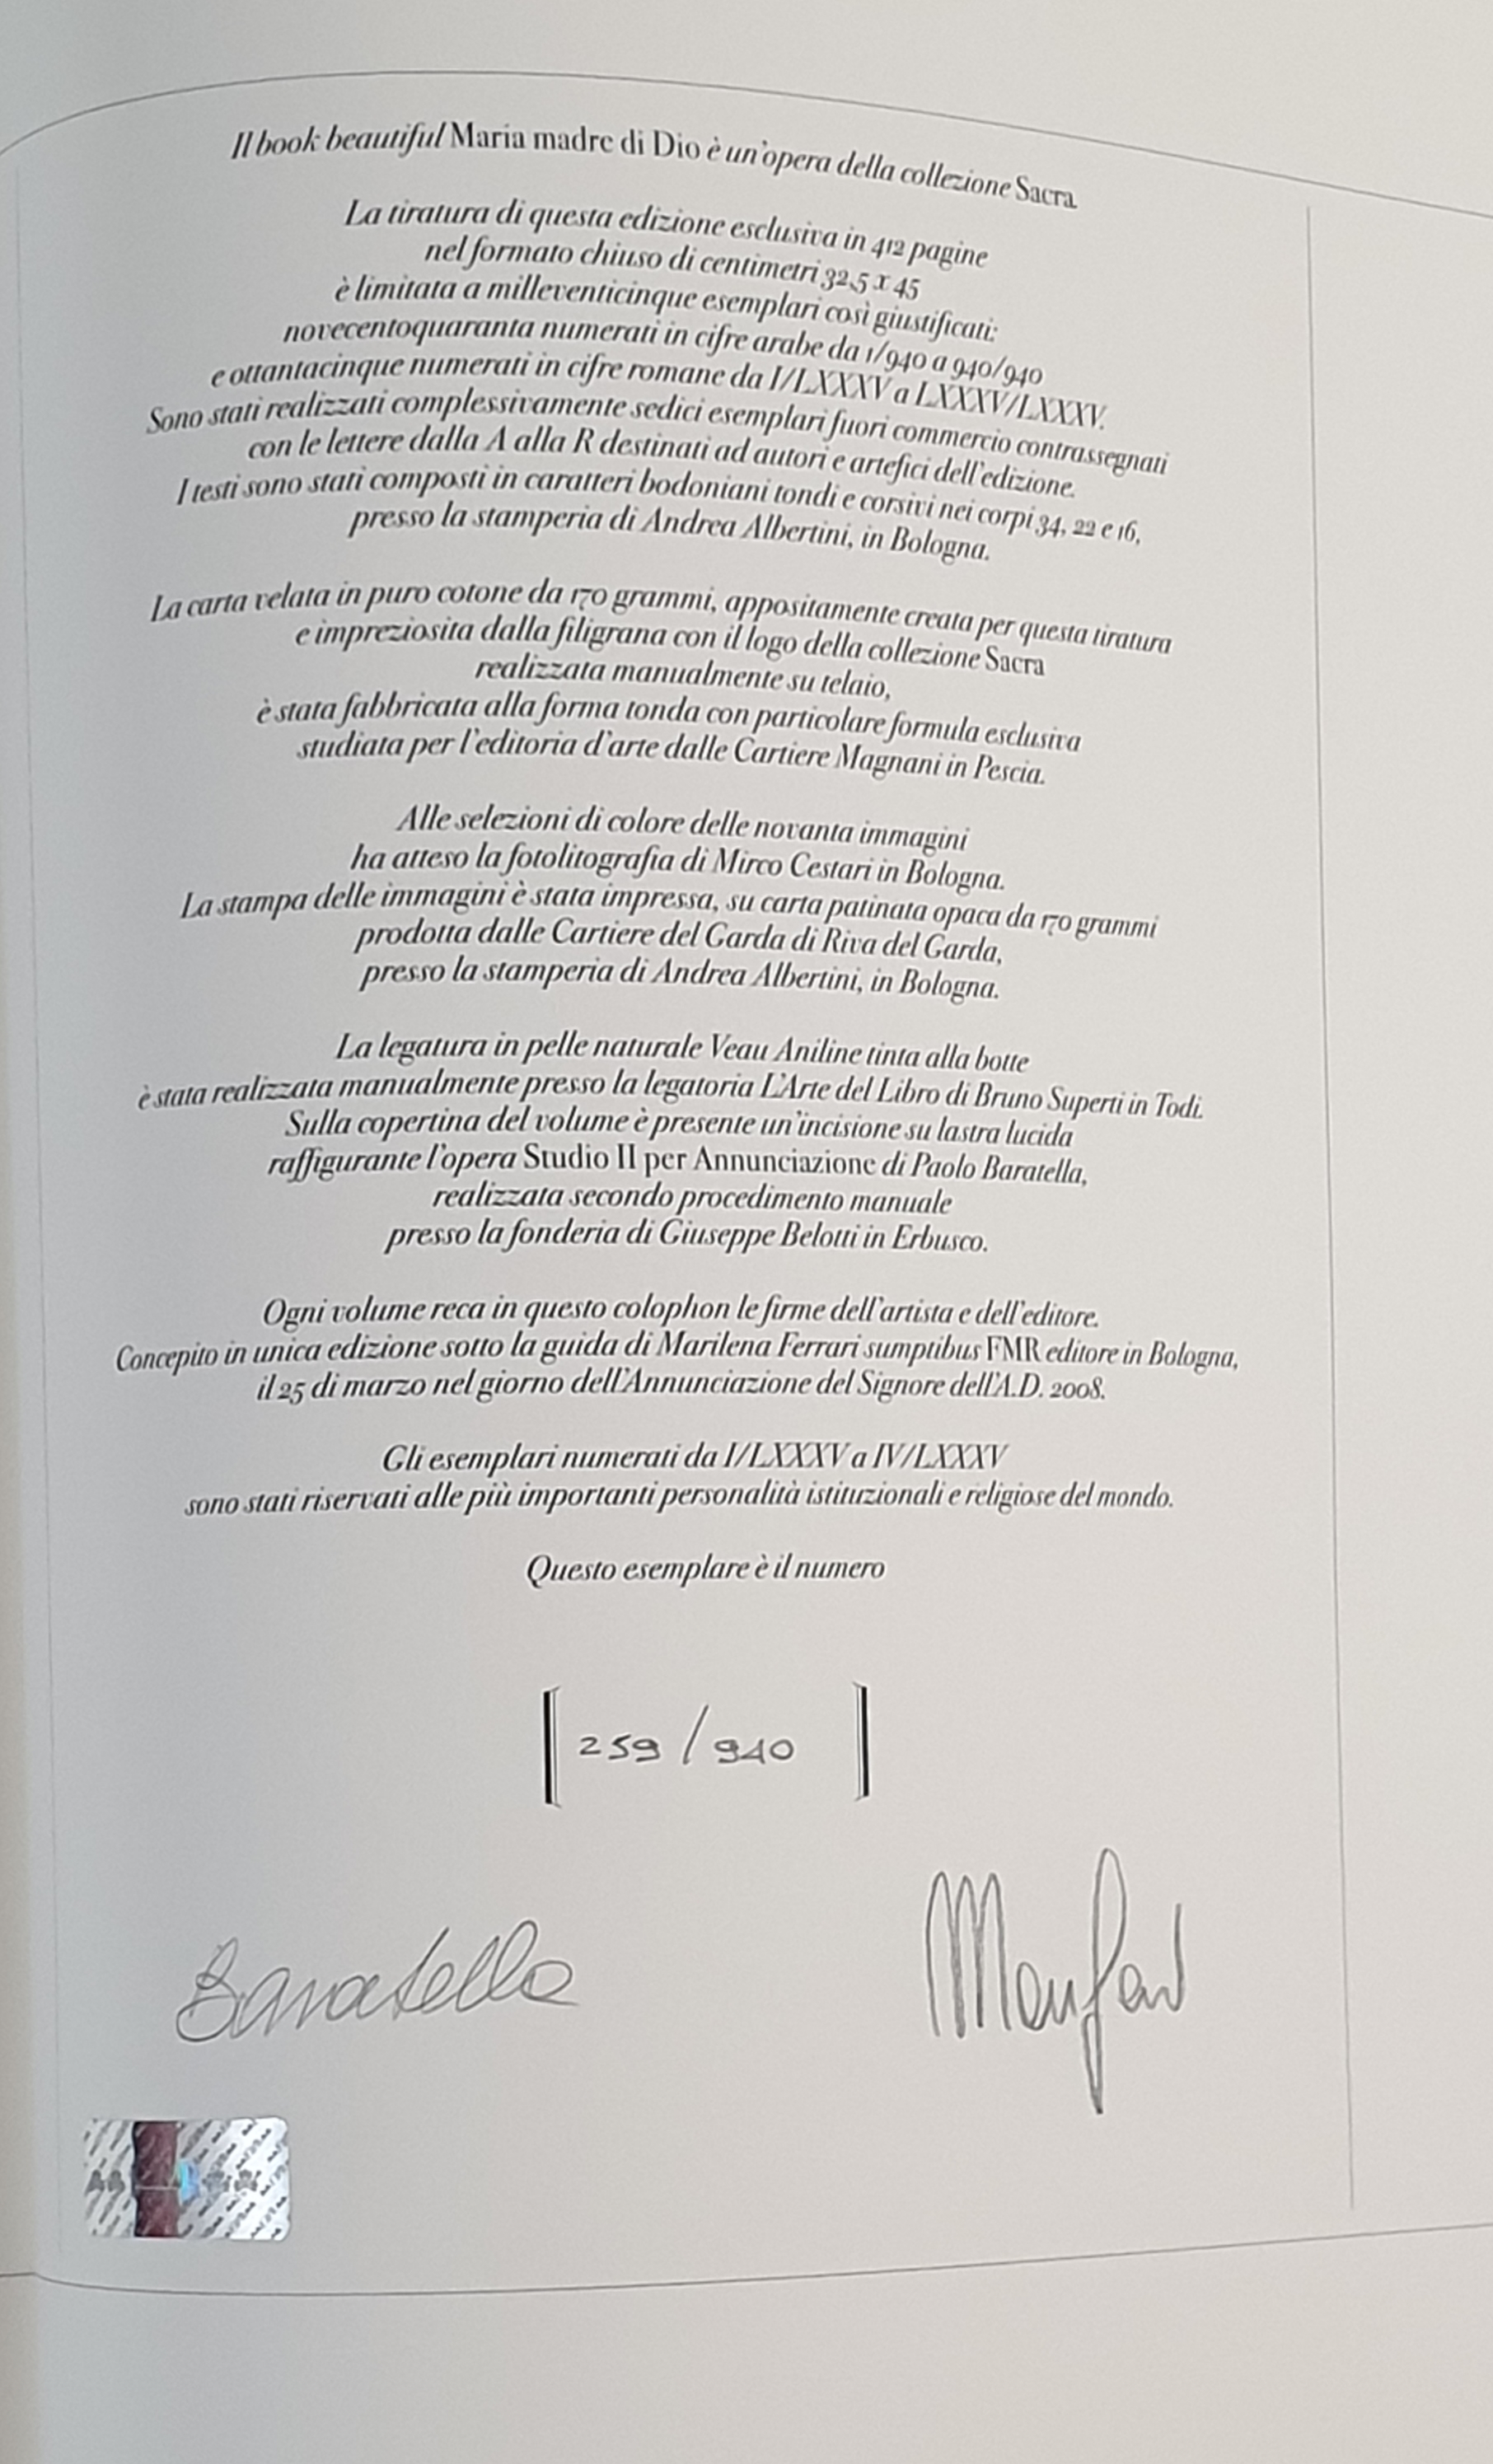 Il book beautiful Maria madre di Dio è un'opera della collezione Sacra.
La tiratura di questa edizione esclusiva in 412 pagine
nel formato chiuso di centimetri 32,5 x 45
è limitata a milleventicinque esemplari così giustificati:
novecentoquaranta numerati in cifre arabe da 1/940 a 940/940
e ottantacinque numerati in cifre romane da I/LXXXV a LXXXV/LXXXV.
Sono stati realizzati complessivamente sedici esemplari fuori commercio contrassegnati
con le lettere dalla A alla R destinati ad autori e artefici dell'edizione.
I testi sono stati composti in caratteri bodoniani tondi e corsivi nei corpi 34, 22 e 16,
presso la stamperia di Andrea Albertini, in Bologna.
La carta velata in puro cotone da 170 grammi, appositamente creata per questa tiratura
e impreziosita dalla filigrana con il logo della collezione Sacra
realizzata manualmente su telaio,
è stata fabbricata alla forma tonda con particolare formula esclusiva
studiata per l'editoria d'arte dalle Cartiere Magnani in Pescia.
Alle selezioni di colore delle novanta immagini
ha atteso la fotolitografia di Mirco Cestari in Bologna.
La stampa delle immagini è stata impressa, su carta patinata opaca da 170 grammi
prodotta dalle Cartiere del Garda di Riva del Garda,
presso la stamperia di Andrea Albertini, in Bologna.
La legatura in pelle naturale Veau Aniline tinta alla botte
è stata realizzata manualmente presso la legatoria L'Arte del Libro di Bruno Superti in Todi.
Sulla copertina del volume è presente un'incisione su lastra lucida
raffigurante l'opera Studio II per Annunciazione di Paolo Baratella,
realizzata secondo procedimento manuale
presso la fonderia di Giuseppe Belotti in Erbusco.
Ogni volume reca in questo colophon le firme dell'artista e dell'editore.
Concepito in unica edizione sotto la guida di Marilena Ferrari sumptibus FMR editore in Bologna,
il 25 di marzo nel giorno dell'Annunciazione del Signore dell'A.D. 2008.
Gli esemplari numerati da I/LXXXV a IV/LXXXV
sono stati riservati alle più importanti personalità istituzionali e religiose del mondo.
Questo esemplare è il numero
[ 259 / 940 ]
Baratella